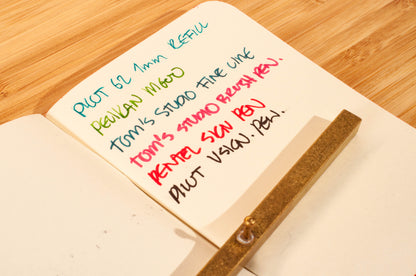 PILOT G2 1mm REFILL
PELIKAN M600
TOM'S STUDIO FINE LINE
TOM'S STUDIO BRUSH PEN.
PENTEL SIGN PEN
PILOT VSIGN. PEN.